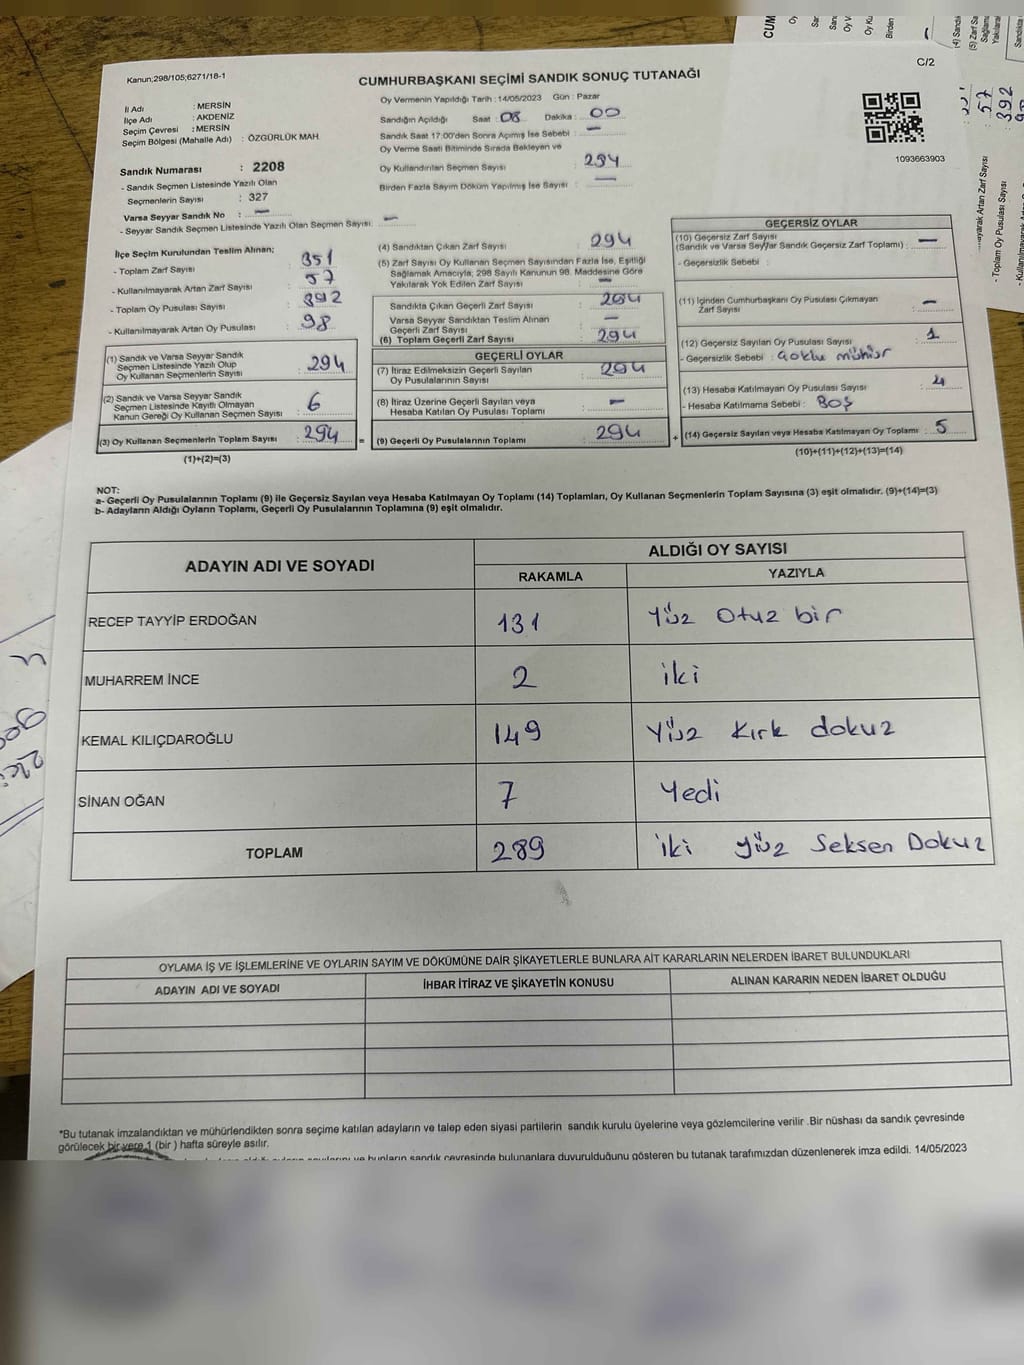 C/2
Kanun;298/105;6271/18-1
CUMHURBAŞKANI SEÇİMİ SANDIK SONUÇ TUTANAĞI
1093663903
İl Adı : MERSİN
İlçe Adı : AKDENİZ
Seçim Çevresi : MERSİN
Seçim Bölgesi (Mahalle Adı) : ÖZGÜRLÜK MAH.
Sandık Numarası : 2208
- Sandık Seçmen Listesinde Yazılı Olan
Seçmenlerin Sayısı : 327
Varsa Seyyar Sandık No : —
- Seyyar Sandık Seçmen Listesinde Yazılı Olan Seçmen Sayısı: —
Oy Vermenin Yapıldığı Tarih : 14/05/2023 Gün : Pazar
Sandığın Açıldığı Saat : 08 Dakika : 00
Sandık Saat 17:00'den Sonra Açımış İse Sebebi : —
Oy Verme Saati Bitiminde Sırada Bekleyen ve
Oy Kullandırılan Seçmen Sayısı : 294
Birden Fazla Sayım Döküm Yapılmış İse Sayısı : —
İlçe Seçim Kurulundan Teslim Alınan;
- Toplam Zarf Sayısı : 351
- Kullanılmayarak Artan Zarf Sayısı : 57
- Toplam Oy Pusulası Sayısı : 392
- Kullanılmayarak Artan Oy Pusulası : 98
(1) Sandık ve Varsa Seyyar Sandık
Seçmen Listesinde Yazılı Olup
Oy Kullanan Seçmenlerin Sayısı : 294
(2) Sandık ve Varsa Seyyar Sandık
Seçmen Listesinde Kayıtlı Olmayan
Kanun Gereği Oy Kullanan Seçmen Sayısı : 6
(3) Oy Kullanan Seçmenlerin Toplam Sayısı : 294 =
(1)+(2)=(3)
(4) Sandıktan Çıkan Zarf Sayısı : 294
(5) Zarf Sayısı Oy Kullanan Seçmen Sayısından Fazla İse, Eşitliği
Sağlamak Amacıyla; 298 Sayılı Kanunun 98. Maddesine Göre
Yakılarak Yok Edilen Zarf Sayısı : —
Sandıkta Çıkan Geçerli Zarf Sayısı : 294
Varsa Seyyar Sandıktan Teslim Alınan
Geçerli Zarf Sayısı : —
(6) Toplam Geçerli Zarf Sayısı : 294
GEÇERLİ OYLAR
(7) İtiraz Edilmeksizin Geçerli Sayılan
Oy Pusulalarının Sayısı : 294
(8) İtiraz Üzerine Geçerli Sayılan veya
Hesaba Katılan Oy Pusulası Toplamı : —
(9) Geçerli Oy Pusulalarının Toplamı : 294 +
GEÇERSİZ OYLAR
(10) Geçersiz Zarf Sayısı
(Sandık ve Varsa Seyyar Sandık Geçersiz Zarf Toplamı) : —
- Geçersizlik Sebebi :
(11) İçinden Cumhurbaşkanı Oy Pusulası Çıkmayan
Zarf Sayısı : —
(12) Geçersiz Sayılan Oy Pusulası Sayısı : 1
- Geçersizlik Sebebi : Çoklu mühür
(13) Hesaba Katılmayan Oy Pusulası Sayısı : 4
- Hesaba Katılmama Sebebi : BOŞ
(14) Geçersiz Sayılan veya Hesaba Katılmayan Oy Toplamı : 5
(10)+(11)+(12)+(13)=(14)
NOT:
a- Geçerli Oy Pusulalarının Toplamı (9) ile Geçersiz Sayılan veya Hesaba Katılmayan Oy Toplamı (14) Toplamları, Oy Kullanan Seçmenlerin Toplam Sayısına (3) eşit olmalıdır. (9)+(14)=(3)
b- Adayların Aldığı Oyların Toplamı, Geçerli Oy Pusulalarının Toplamına (9) eşit olmalıdır.
ADAYIN ADI VE SOYADI ALDIĞI OY SAYISI
RAKAMLA YAZIYLA
RECEP TAYYİP ERDOĞAN 131 Yüz Otuz bir
MUHARREM İNCE 2 iki
KEMAL KILIÇDAROĞLU 149 Yüz Kırk dokuz
SİNAN OĞAN 7 Yedi
TOPLAM 289 iki yüz Seksen Dokuz
OYLAMA İŞ VE İŞLEMLERİNE VE OYLARIN SAYIM VE DÖKÜMÜNE DAİR ŞİKAYETLERLE BUNLARA AİT KARARLARIN NELERDEN İBARET BULUNDUKLARI
ADAYIN ADI VE SOYADI İHBAR İTİRAZ VE ŞİKAYETİN KONUSU ALINAN KARARIN NEDEN İBARET OLDUĞU
*Bu tutanak imzalandıktan ve mühürlendikten sonra seçime katılan adayların ve talep eden siyasi partilerin sandık kurulu üyelerine veya gözlemcilerine verilir .Bir nüshası da sandık çevresinde
görülecek bir yere 1 (bir ) hafta süreyle asılır.
ve bunların sandık çevresinde bulunanlara duyurulduğunu gösteren bu tutanak tarafımızdan düzenlenerek imza edildi. 14/05/2023